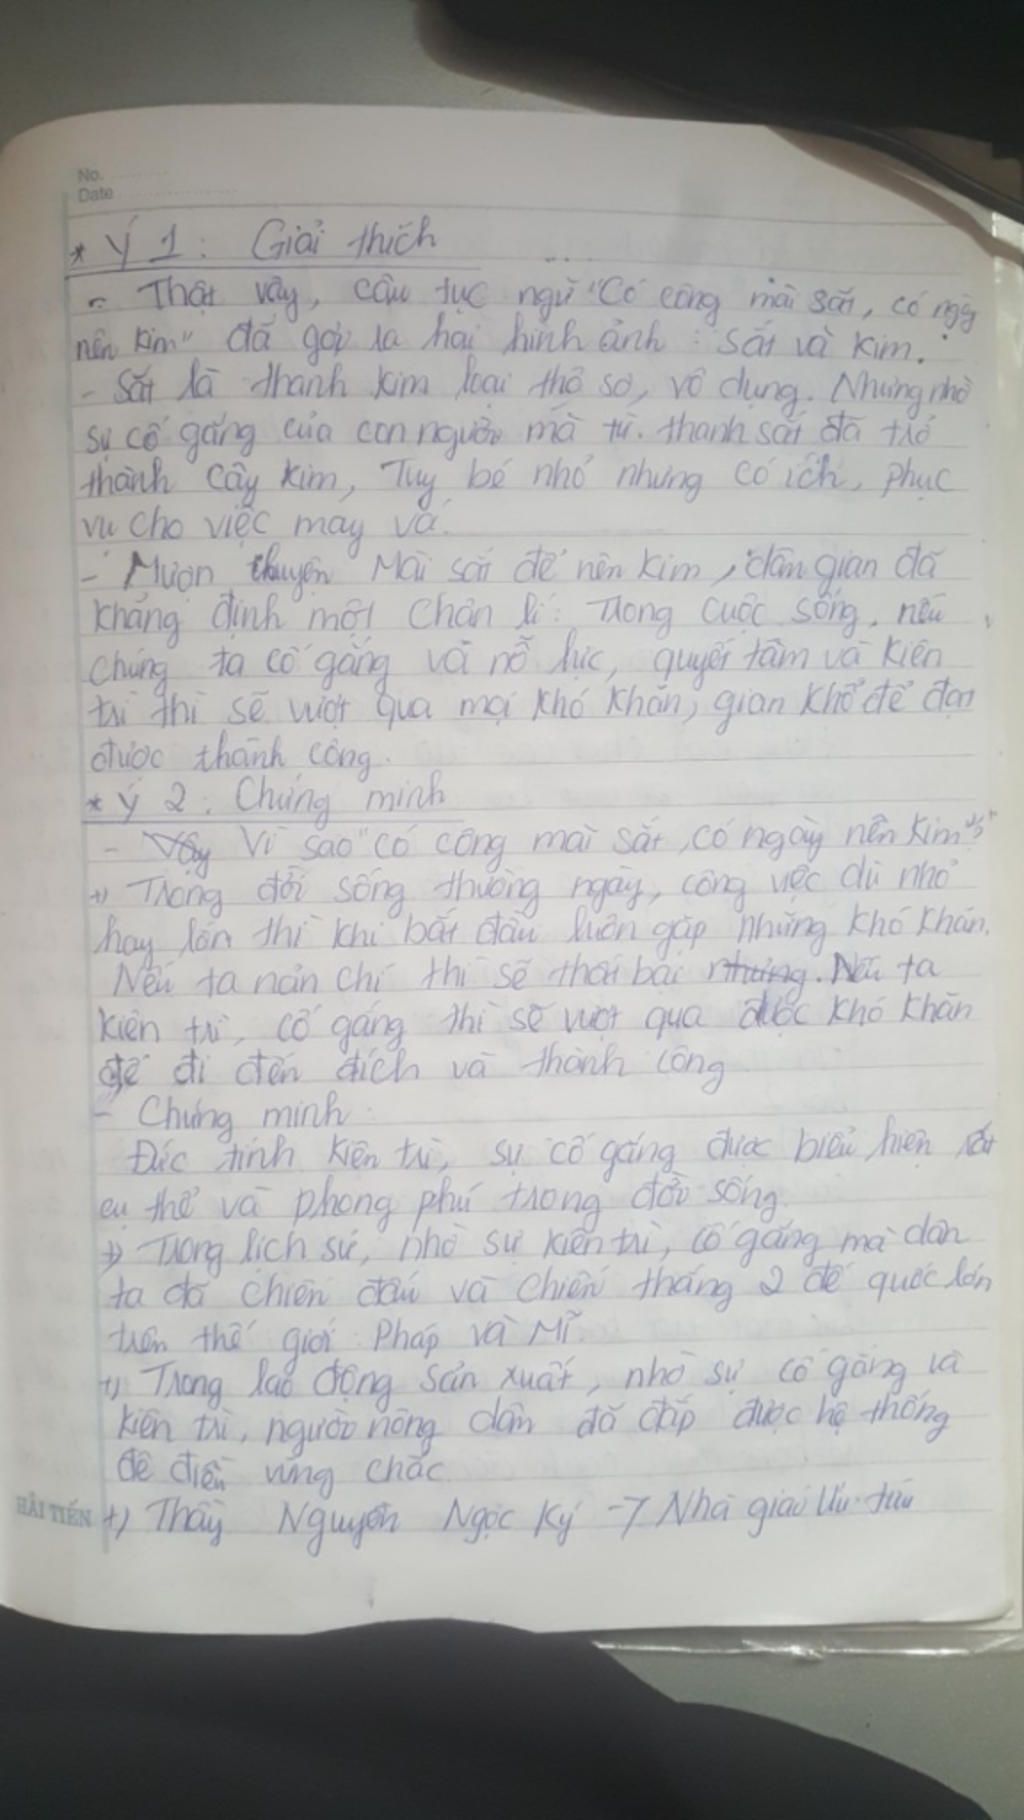 No.
Date
* Ý 1: Giải thích
- Thật vậy, câu tục ngữ "Có công mài sắt, có ngày
nên kim" đã gợi ra hai hình ảnh: sắt và kim.
- Sắt là thanh kim loại thô sơ, vô dụng. Nhưng nhờ
sự cố gắng của con người mà từ thanh sắt đã trở
thành cây kim, Tuy bé nhỏ nhưng có ích, phục
vụ cho việc may vá.
- Mượn chuyện Mài sắt để nên kim, dân gian đã
khẳng định một chân lí: Trong cuộc sống, nếu
chúng ta cố gắng và nỗ lực, quyết tâm và kiên
trì thì sẽ vượt qua mọi khó khăn, gian khổ để đạt
được thành công.
* Ý 2: Chứng minh
- Vì sao "có công mài sắt, có ngày nên kim"?
+) Trong đời sống thường ngày, công việc dù nhỏ
hay lớn thì khi bắt đầu luôn gặp những khó khăn.
Nếu ta nản chí thì sẽ thất bại nhưng. Nếu ta
kiên trì, cố gắng thì sẽ vượt qua được khó khăn
để đi đến đích và thành công
- Chứng minh:
Đức tính kiên trì, sự cố gắng được biểu hiện rất
cụ thể và phong phú trong đời sống.
+) Trong lịch sử, nhờ sự kiên trì, cố gắng mà dân
ta đã chiến đấu và chiến thắng 2 đế quốc lớn
trên thế giới: Pháp và Mĩ
+) Trong lao động sản xuất, nhờ sự cố gắng và
kiên trì, người nông dân đã đắp được hệ thống
đê điều vững chắc.
HẢI TIẾN
+) Thầy Nguyễn Ngọc Ký -> Nhà giáo Ưu tú